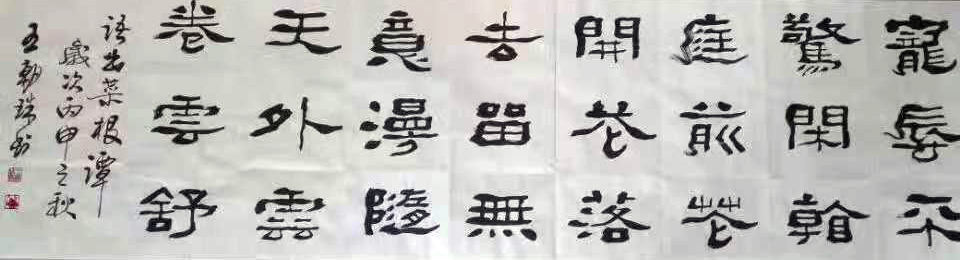 寵辱不
驚閑看
庭前花
開花落
去留無
意漫隨
天外雲
卷雲舒
語出菜根譚
歲次丙申之秋
王